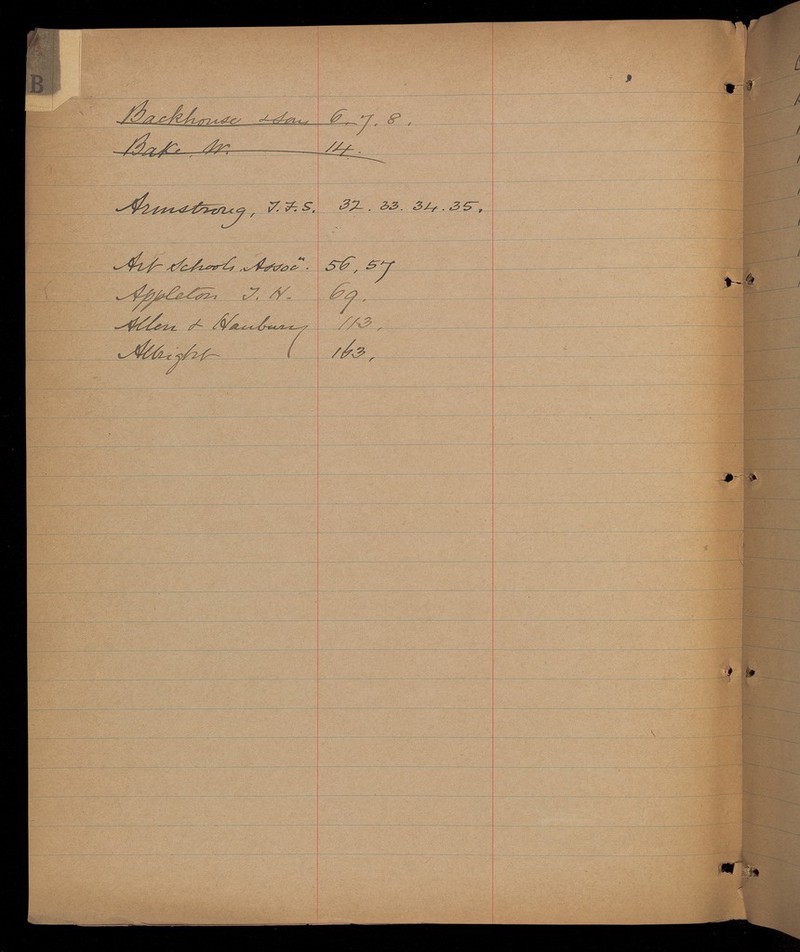 B
Backhouse & Sons 6. 7. 8.
Bake. W. 14.
Armstrong, T.F.S. 32. 33. 34. 35.
Art Schools. Assocn. 56, 57
Appleton J. H. 69.
Allen & Hanbury 113.
Albright 163.